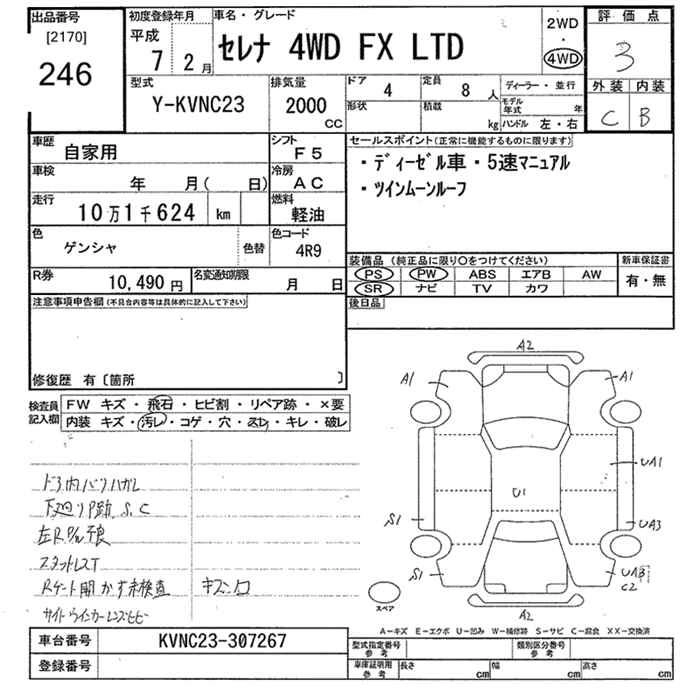 出品番号
[2170]
246
初度登録年月
平成
7 2月
車名・グレード
セレナ 4WD FX LTD
2WD
・
4WD
評価点
3
外装 内装
C B
型式
Y-KVNC23
排気量
2000
CC
ドア
4
定員
8 人
形状
積載
kg
ディーラー・並行
モデル年式 年
ハンドル 左・右
車歴
自家用
シフト
F5
車検
年 月( 日)
冷房
AC
走行
10万1千624 km
燃料
軽油
色
ゲンシャ
色替
色コード
4R9
R券
10,490円
名変通知期限
月 日
セールスポイント(正常に機能するものに限ります)
・ディーゼル車・5速マニュアル
・ツインムーンルーフ
装備品(純正品に限り〇をつけてください)
PS PW ABS エアB AW
SR ナビ TV カワ
新車保証書
有・無
後日品
注意事項申告欄(不具合内容等は具体的に記入して下さい)
修復歴 有〔箇所 〕
検査員記入欄
FW キズ・飛石・ヒビ割・リペア跡・×要
内装 キズ・汚レ・コゲ・穴・スレ・キレ・破レ
ドア内バリハガレ
下廻りP跡 S.C
左R 不良
スタッドレスT
Rゲート開かず未検査
サイドウインカーレンズヒビ
A2
A1
A1
UA1
U1
S1
UA3
S1
UA3
C2
A2
スペア
A-キズ E-エクボ U-凹み W-補修跡 S-サビ C-腐食 XX-交換済
車台番号
KVNC23-307267
登録番号
型式指定番号参考
類別区分番号参考
車庫証明用参考
長さ cm
幅 cm
高さ cm